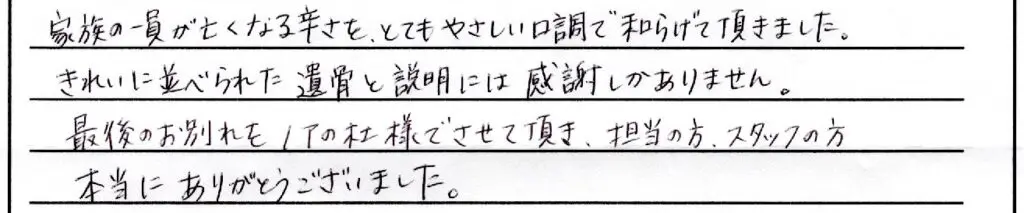 家族の一員が亡くなる辛さを、とてもやさしい口調で和らげて頂きました。
きれいに並べられた遺骨と説明には感謝しかありません。
最後のお別れを の杜様でさせて頂き、担当の方、スタッフの方
本当にありがとうございました。